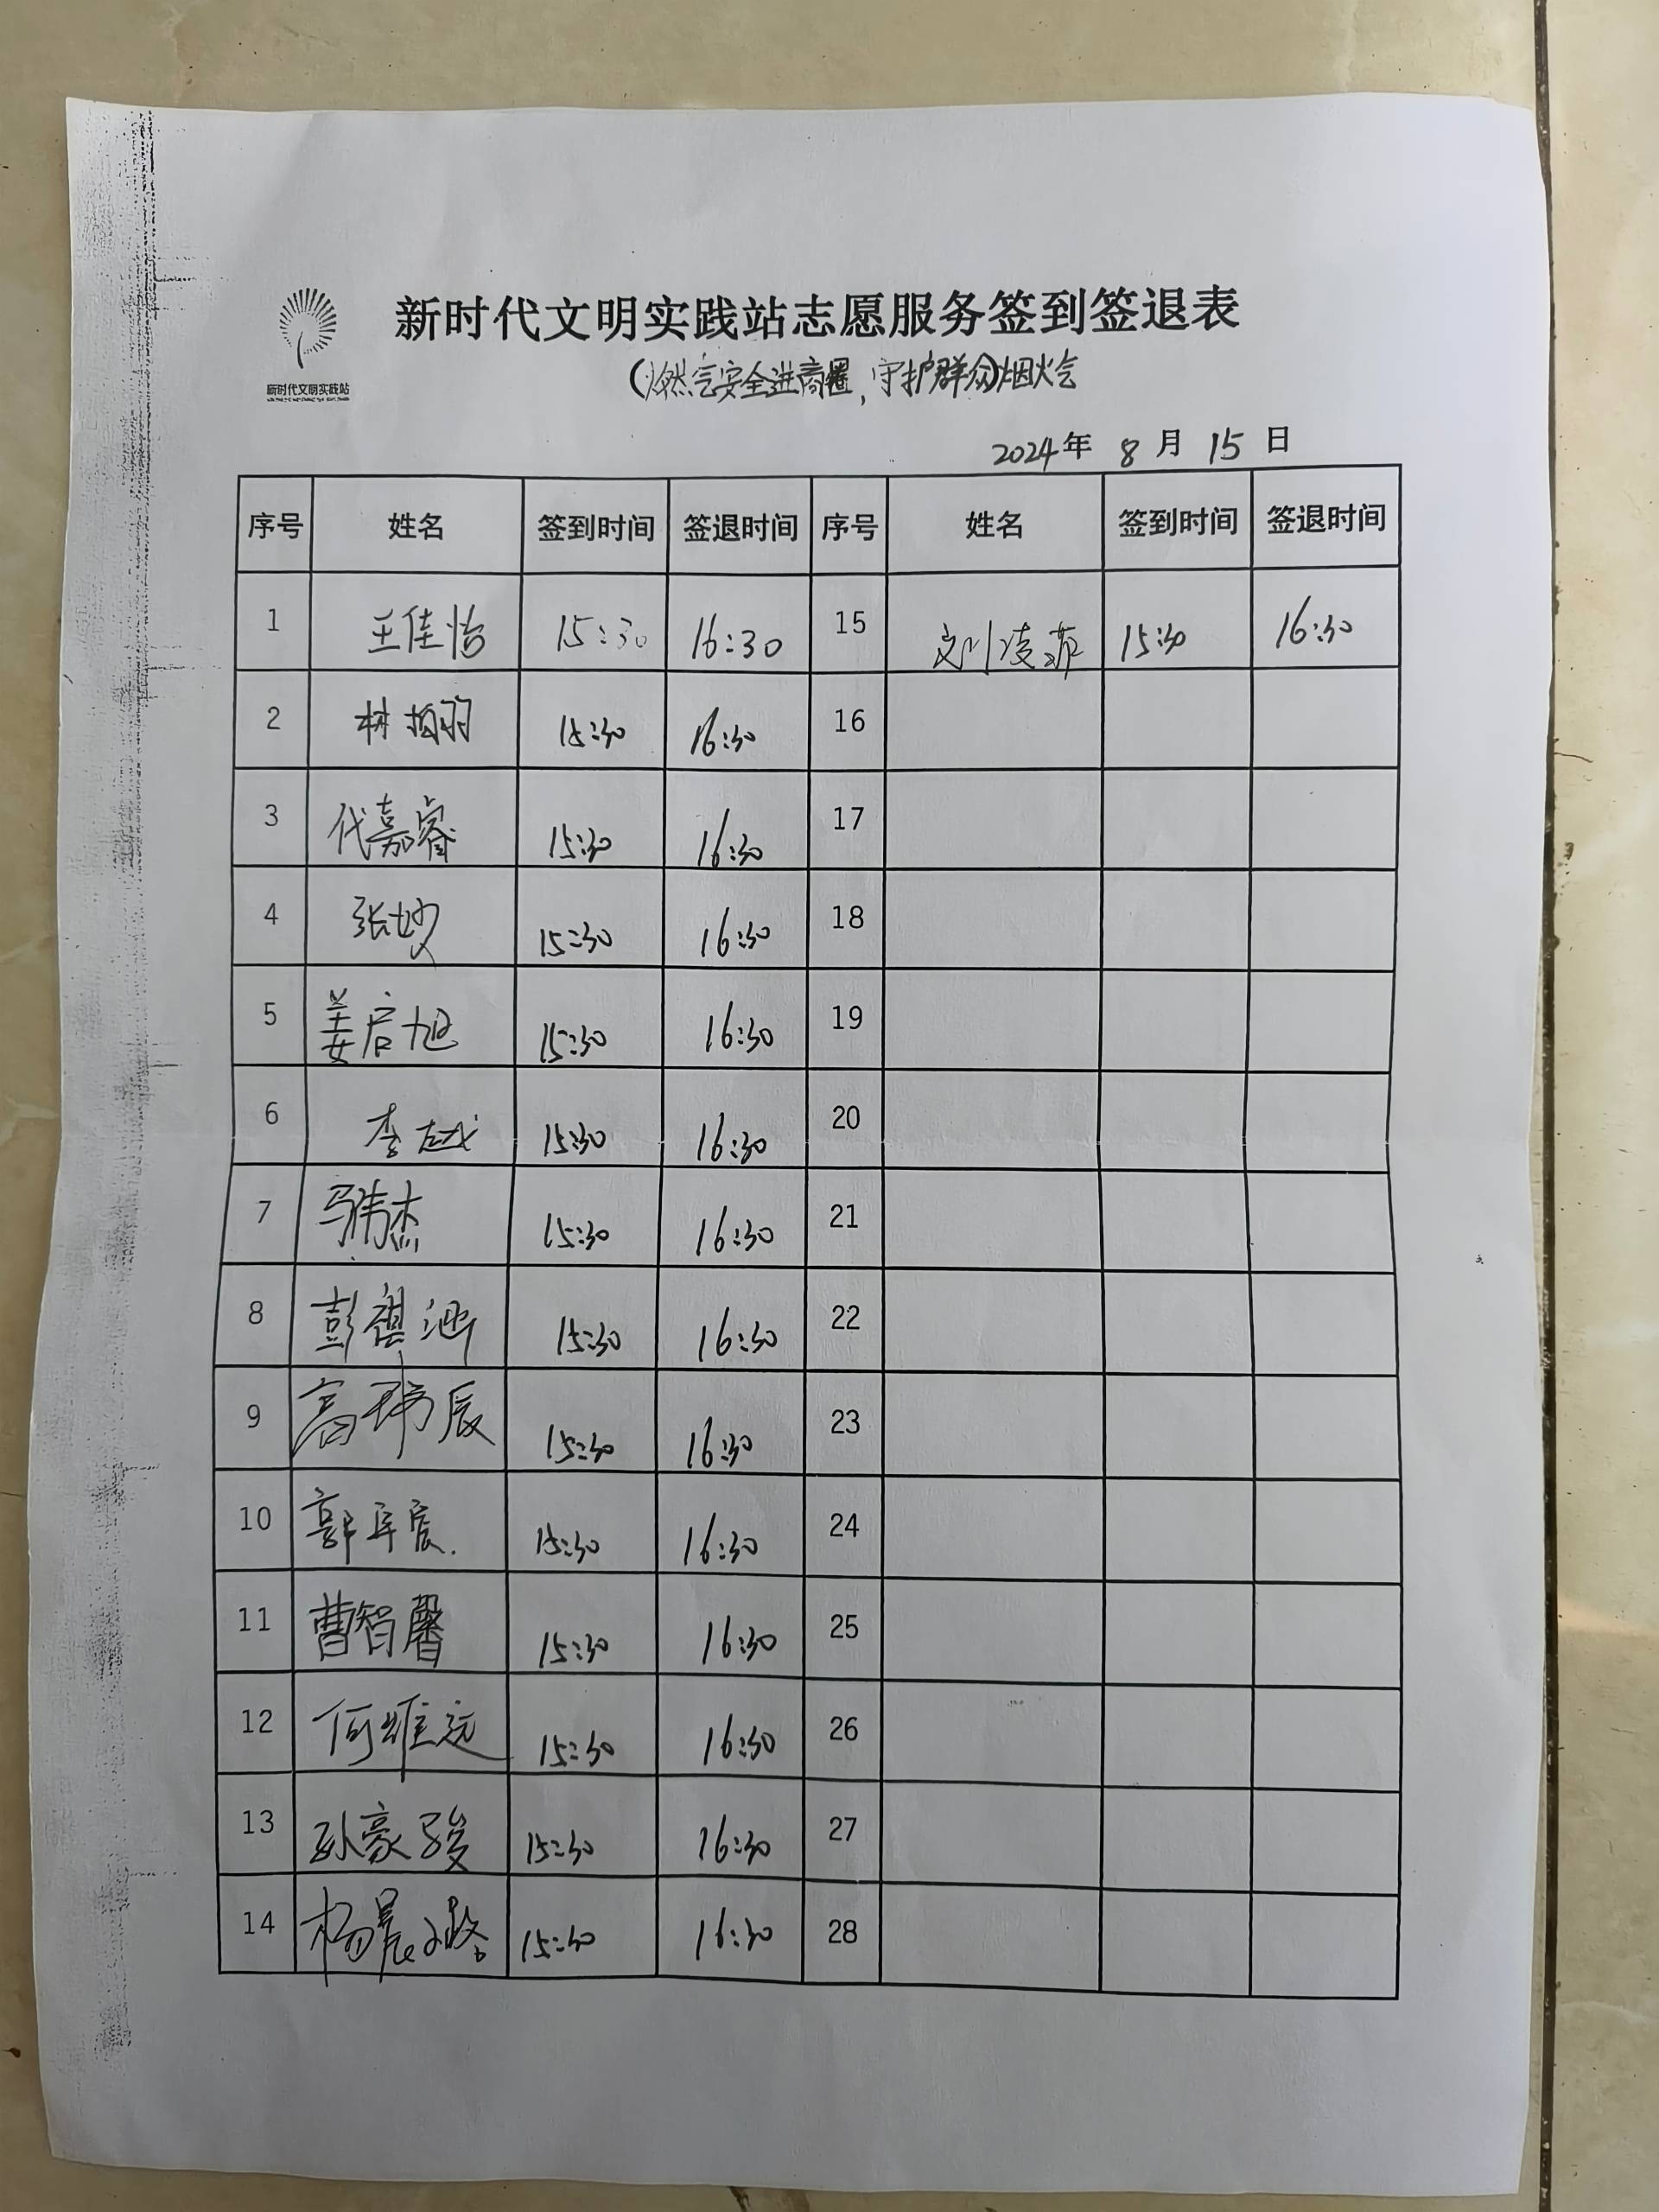 新时代文明实践站志愿服务签到签退表
新时代文明实践站
(燃气安全进商圈,守护群众烟火气
2024年 8 月 15 日
序号 姓名 签到时间 签退时间 序号 姓名 签到时间 签退时间
1 王佳怡 15:30 16:30 15 刘凌菲 15:30 16:30
2 林柏羽 15:30 16:30 16
3 代嘉睿 15:30 16:30 17
4 张妙 15:30 16:30 18
5 姜启旭 15:30 16:30 19
6 李越 15:30 16:30 20
7 马伟杰 15:30 16:30 21
8 彭祺涵 15:30 16:30 22
9 高玮辰 15:30 16:30 23
10 郭宸 15:30 16:30 24
11 曹智馨 15:30 16:30 25
12 何维远 15:30 16:30 26
13 孙豪骏 15:30 16:30 27
14 杨晨 15:30 16:30 28